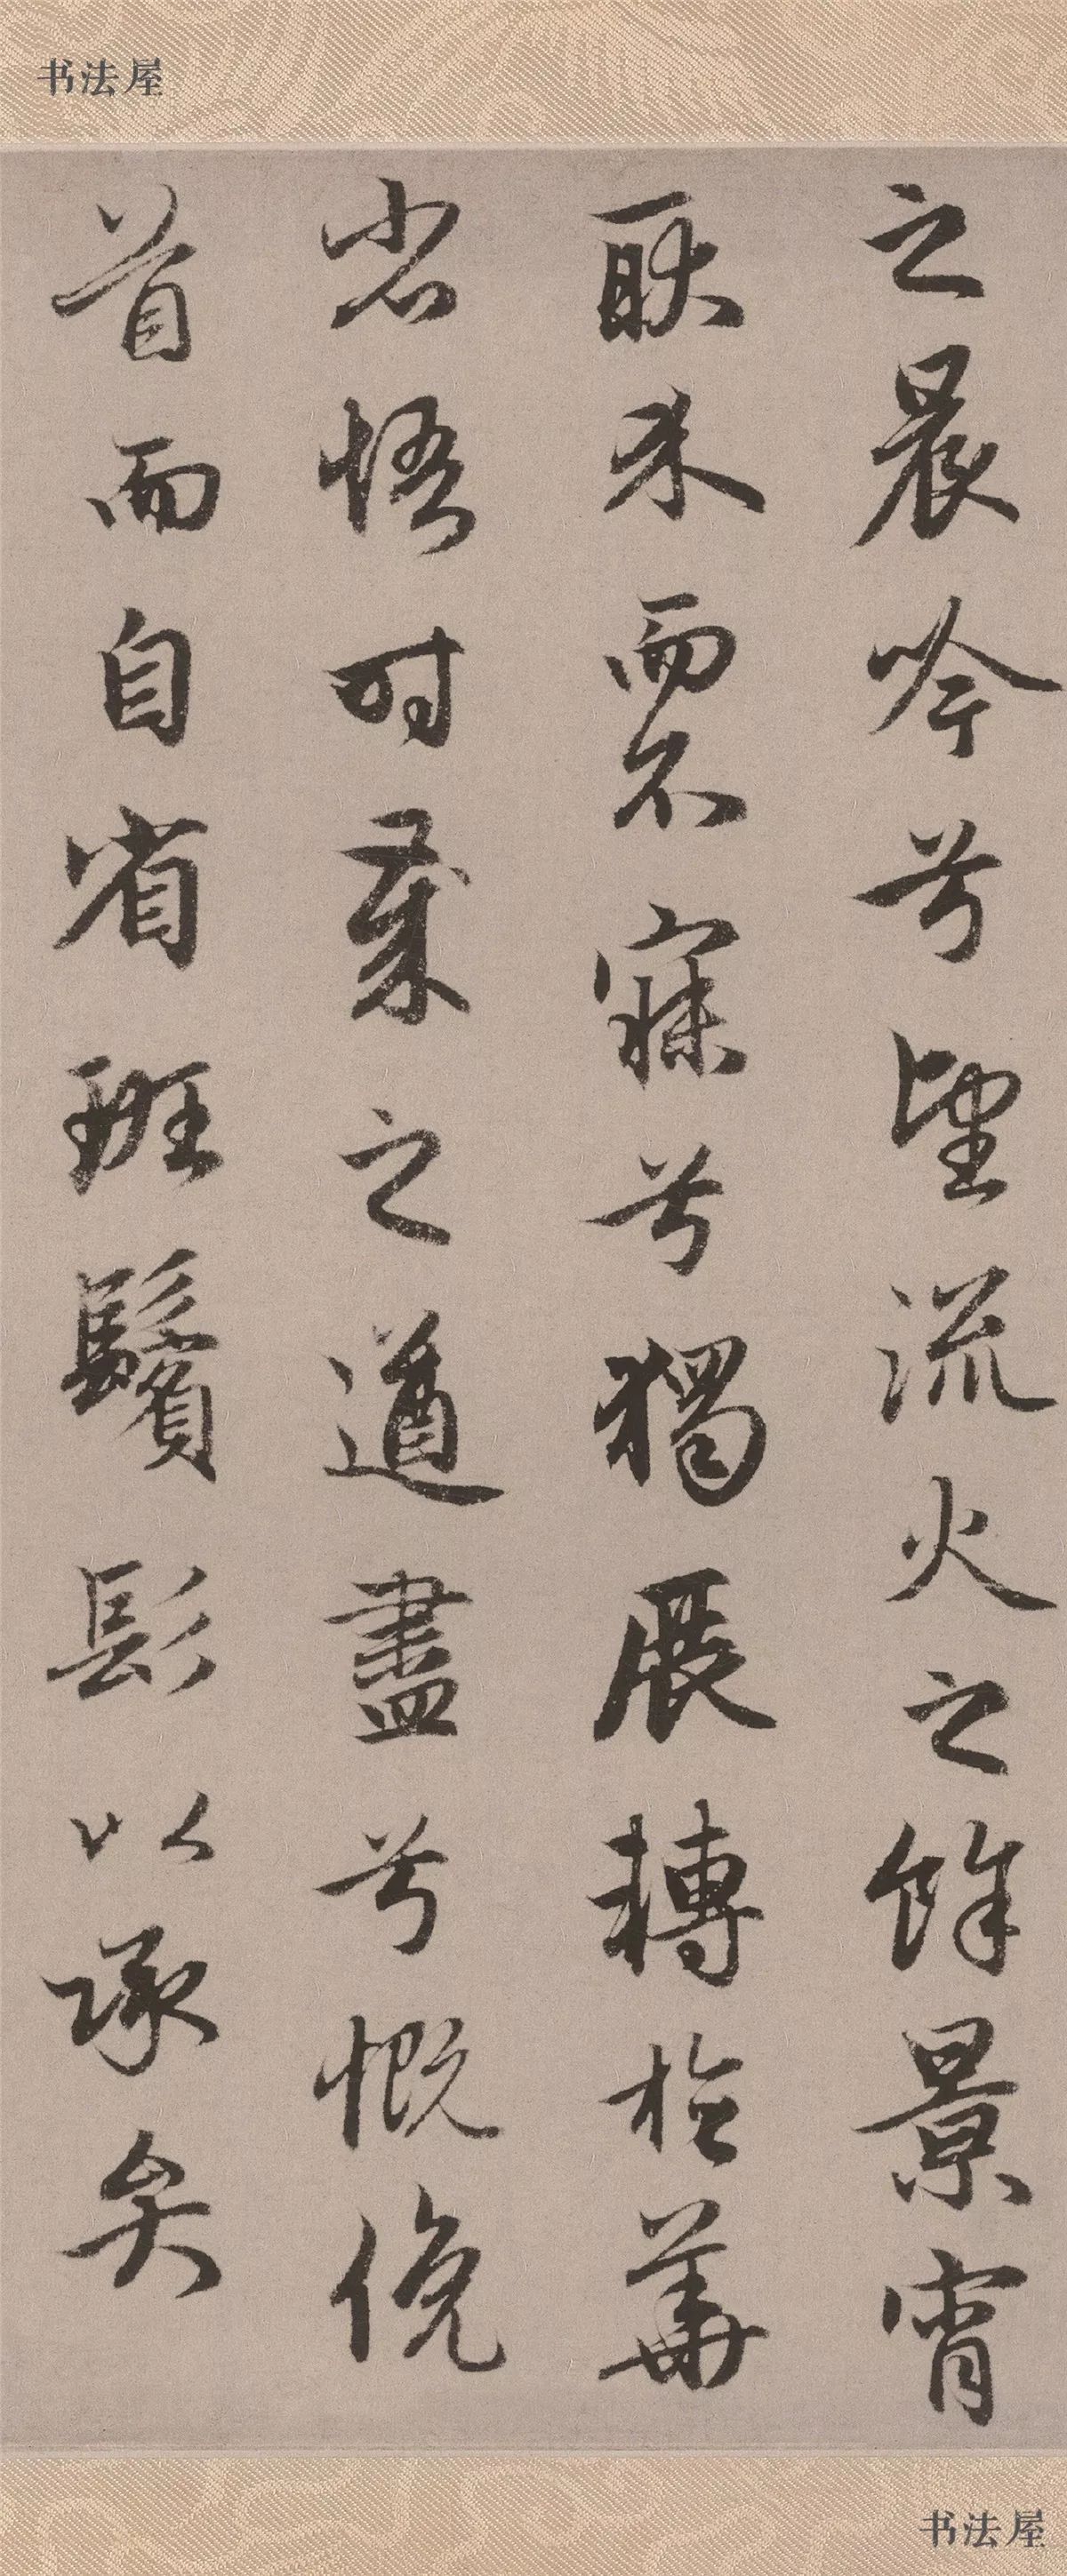 书法屋
之晨吟兮望流火之餘景宵
耿介而不寐兮獨展轉於華
省悟時歲之遒盡兮慨俛
首而自省斑鬢髟以承弁
书法屋